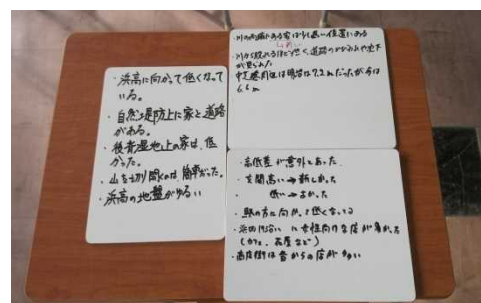 ・浜高に向かって低くなって
いる。
・自然堤防上に家と道路
がある。
・後背湿地上の家は、低
かった。
・山を切り開くのは 簡単だった。
・浜高の地盤がゆるい
・川の近くにある家は少し高い位置にある
・川から離れるほど低く、道路の
が見られた
は明治は7.2mだったが今は
6.5m
・高低差が意外とあった
・玄関高い→新しかった
低い→古かった
・駅の方に向かって低くなってる
・浜田 に女性向けな店が多かった
(カフェ、花屋など)
・商店街は昔からの店が多い